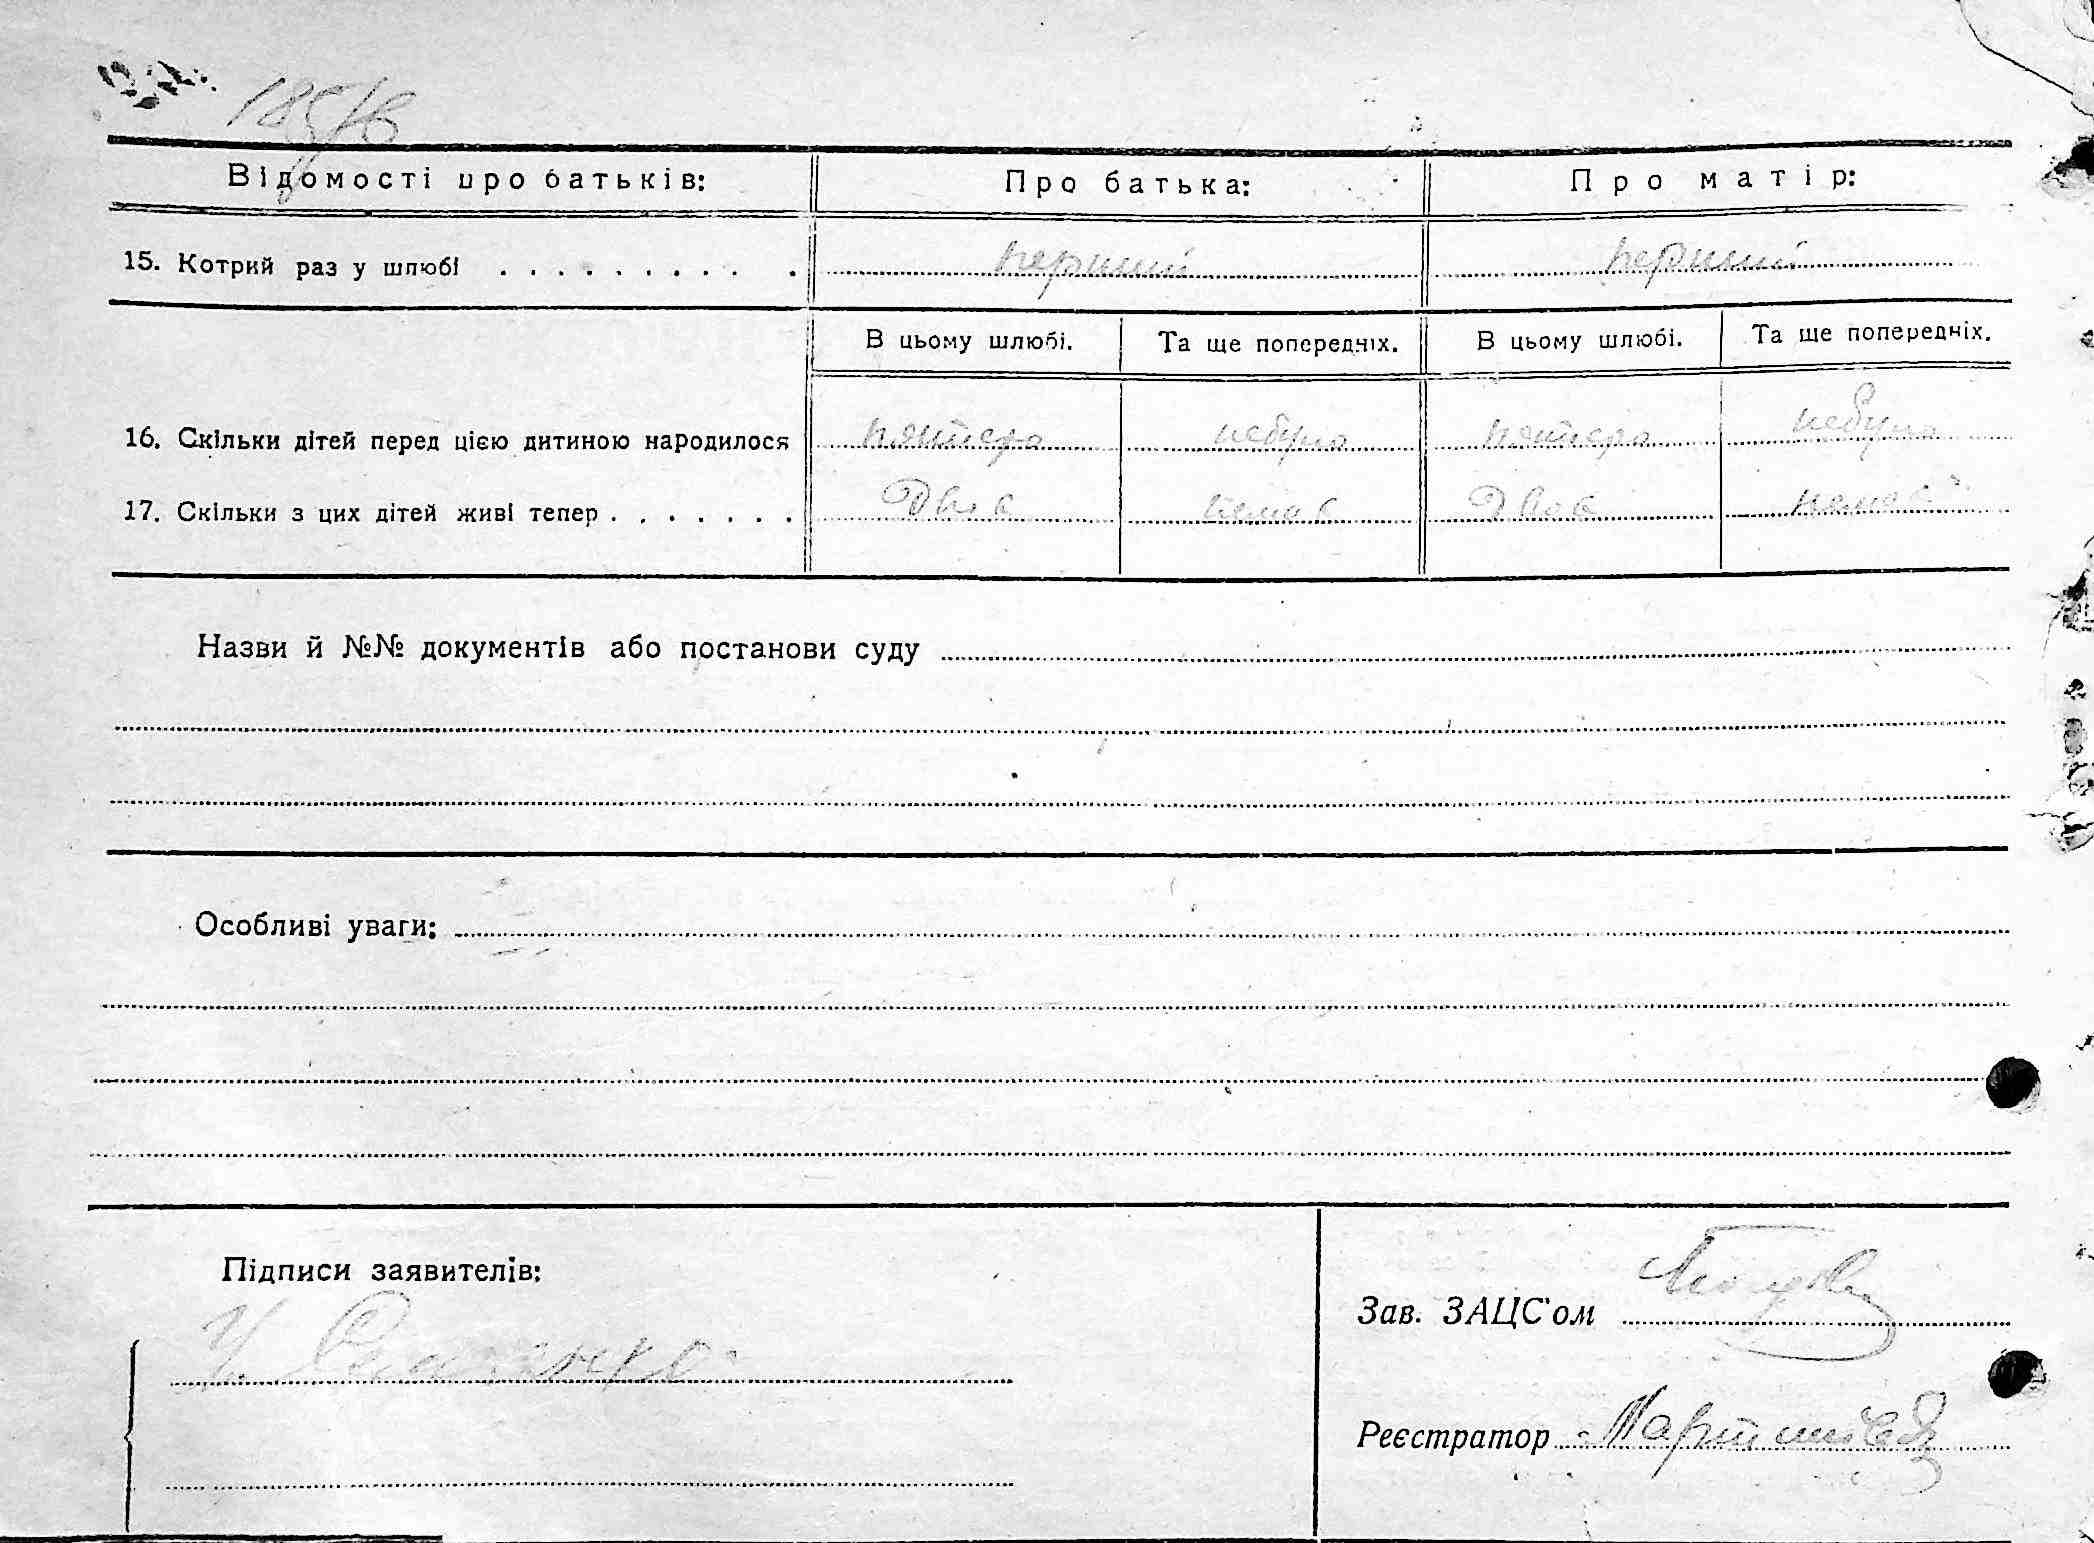 185/в
Відомості про батьків: Про батька: Про матір:
15. Котрий раз у шлюбі . . . . . . . . . . перший перший
В цьому шлюбі. Та ще попередніх. В цьому шлюбі. Та ще попередніх.
16. Скільки дітей перед цією дитиною народилося пятеро небуло пятеро небуло
17. Скільки з цих дітей живі тепер . . . . . . . Двоє немає Двоє немає
Назви й №№ документів або постанови суду
Особливі уваги:
Підписи заявителів:
Зав. ЗАЦС'ом
Реєстратор